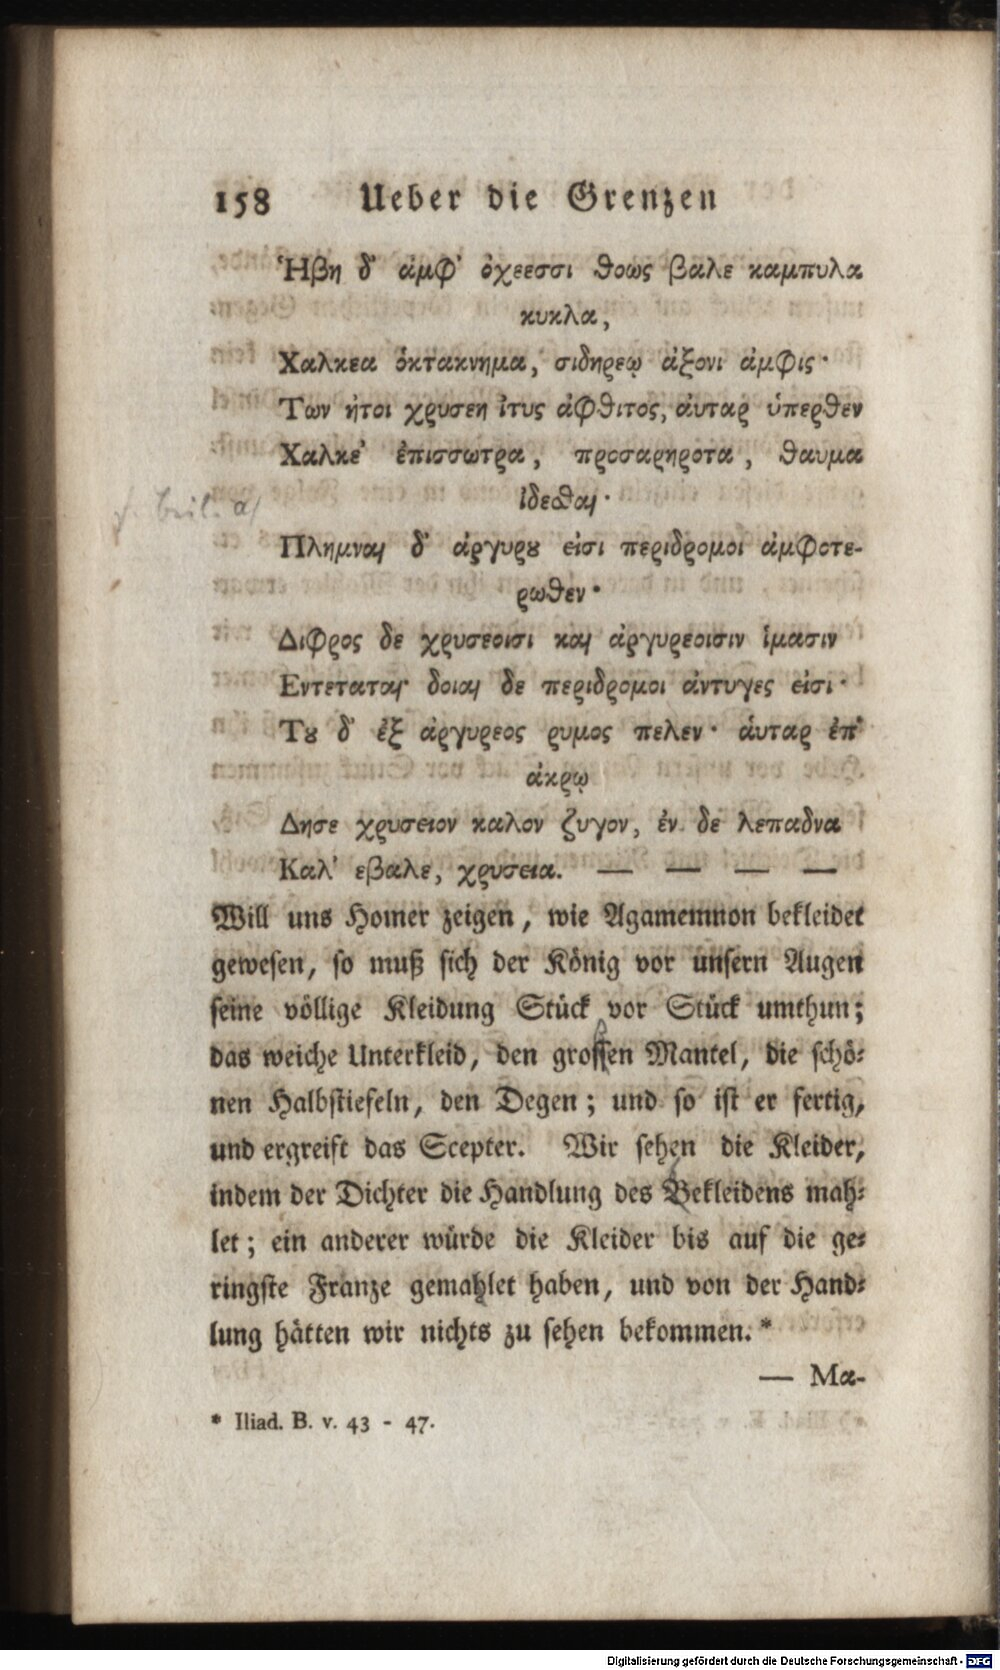 158 Ueber die Grenzen
Ἡβη δ' ἀμφ' ὀχεεσσι θοως βαλε καμπυλα
κυκλα,
Χαλκεα ὀκτακνημα, σιδηρεῳ ἀξονι ἀμφις·
Των ἠτοι χρυσεη ἰτυς ἀφθιτος, ἀυταρ ὑπερθεν
Χαλκε' ἐπισσωτρα, προσαρηροτα, θαυμα
ἰδεσθαι·
Πλημναι δ' ἀργυρȣ εἰσι περιδρομοι ἀμφοτε-
ρωθεν·
Διφρος δε χρυσεοισι και ἀργυρεοισιν ἱμασιν
Εντεταται· δοιαι δε περιδρομοι ἀντυγες εἰσι·
Τȣ δ' ἐξ ἀργυρεος ρυμος πελεν· ἀυταρ ἐπ'
ἀκρῳ
Δησε χρυσειον καλον ζυγον, ἐν δε λεπαδνα
Καλ' εβαλε, χρυσεια. — — — —
Will uns Homer zeigen, wie Agamemnon bekleidet
gewesen, so muß sich der König vor unsern Augen
seine völlige Kleidung Stück vor Stück umthun;
das weiche Unterkleid, den grossen Mantel, die schö-
nen Halbstiefeln, den Degen; und so ist er fertig,
und ergreift das Scepter. Wir sehen die Kleider,
indem der Dichter die Handlung des Bekleidens mah-
let; ein anderer würde die Kleider bis auf die ge-
ringste Franze gemahlet haben, und von der Hand-
lung hätten wir nichts zu sehen bekommen. *
— Μα-
* Iliad. B. v. 43 - 47.
Digitalisierung gefördert durch die Deutsche Forschungsgemeinschaft - DFG